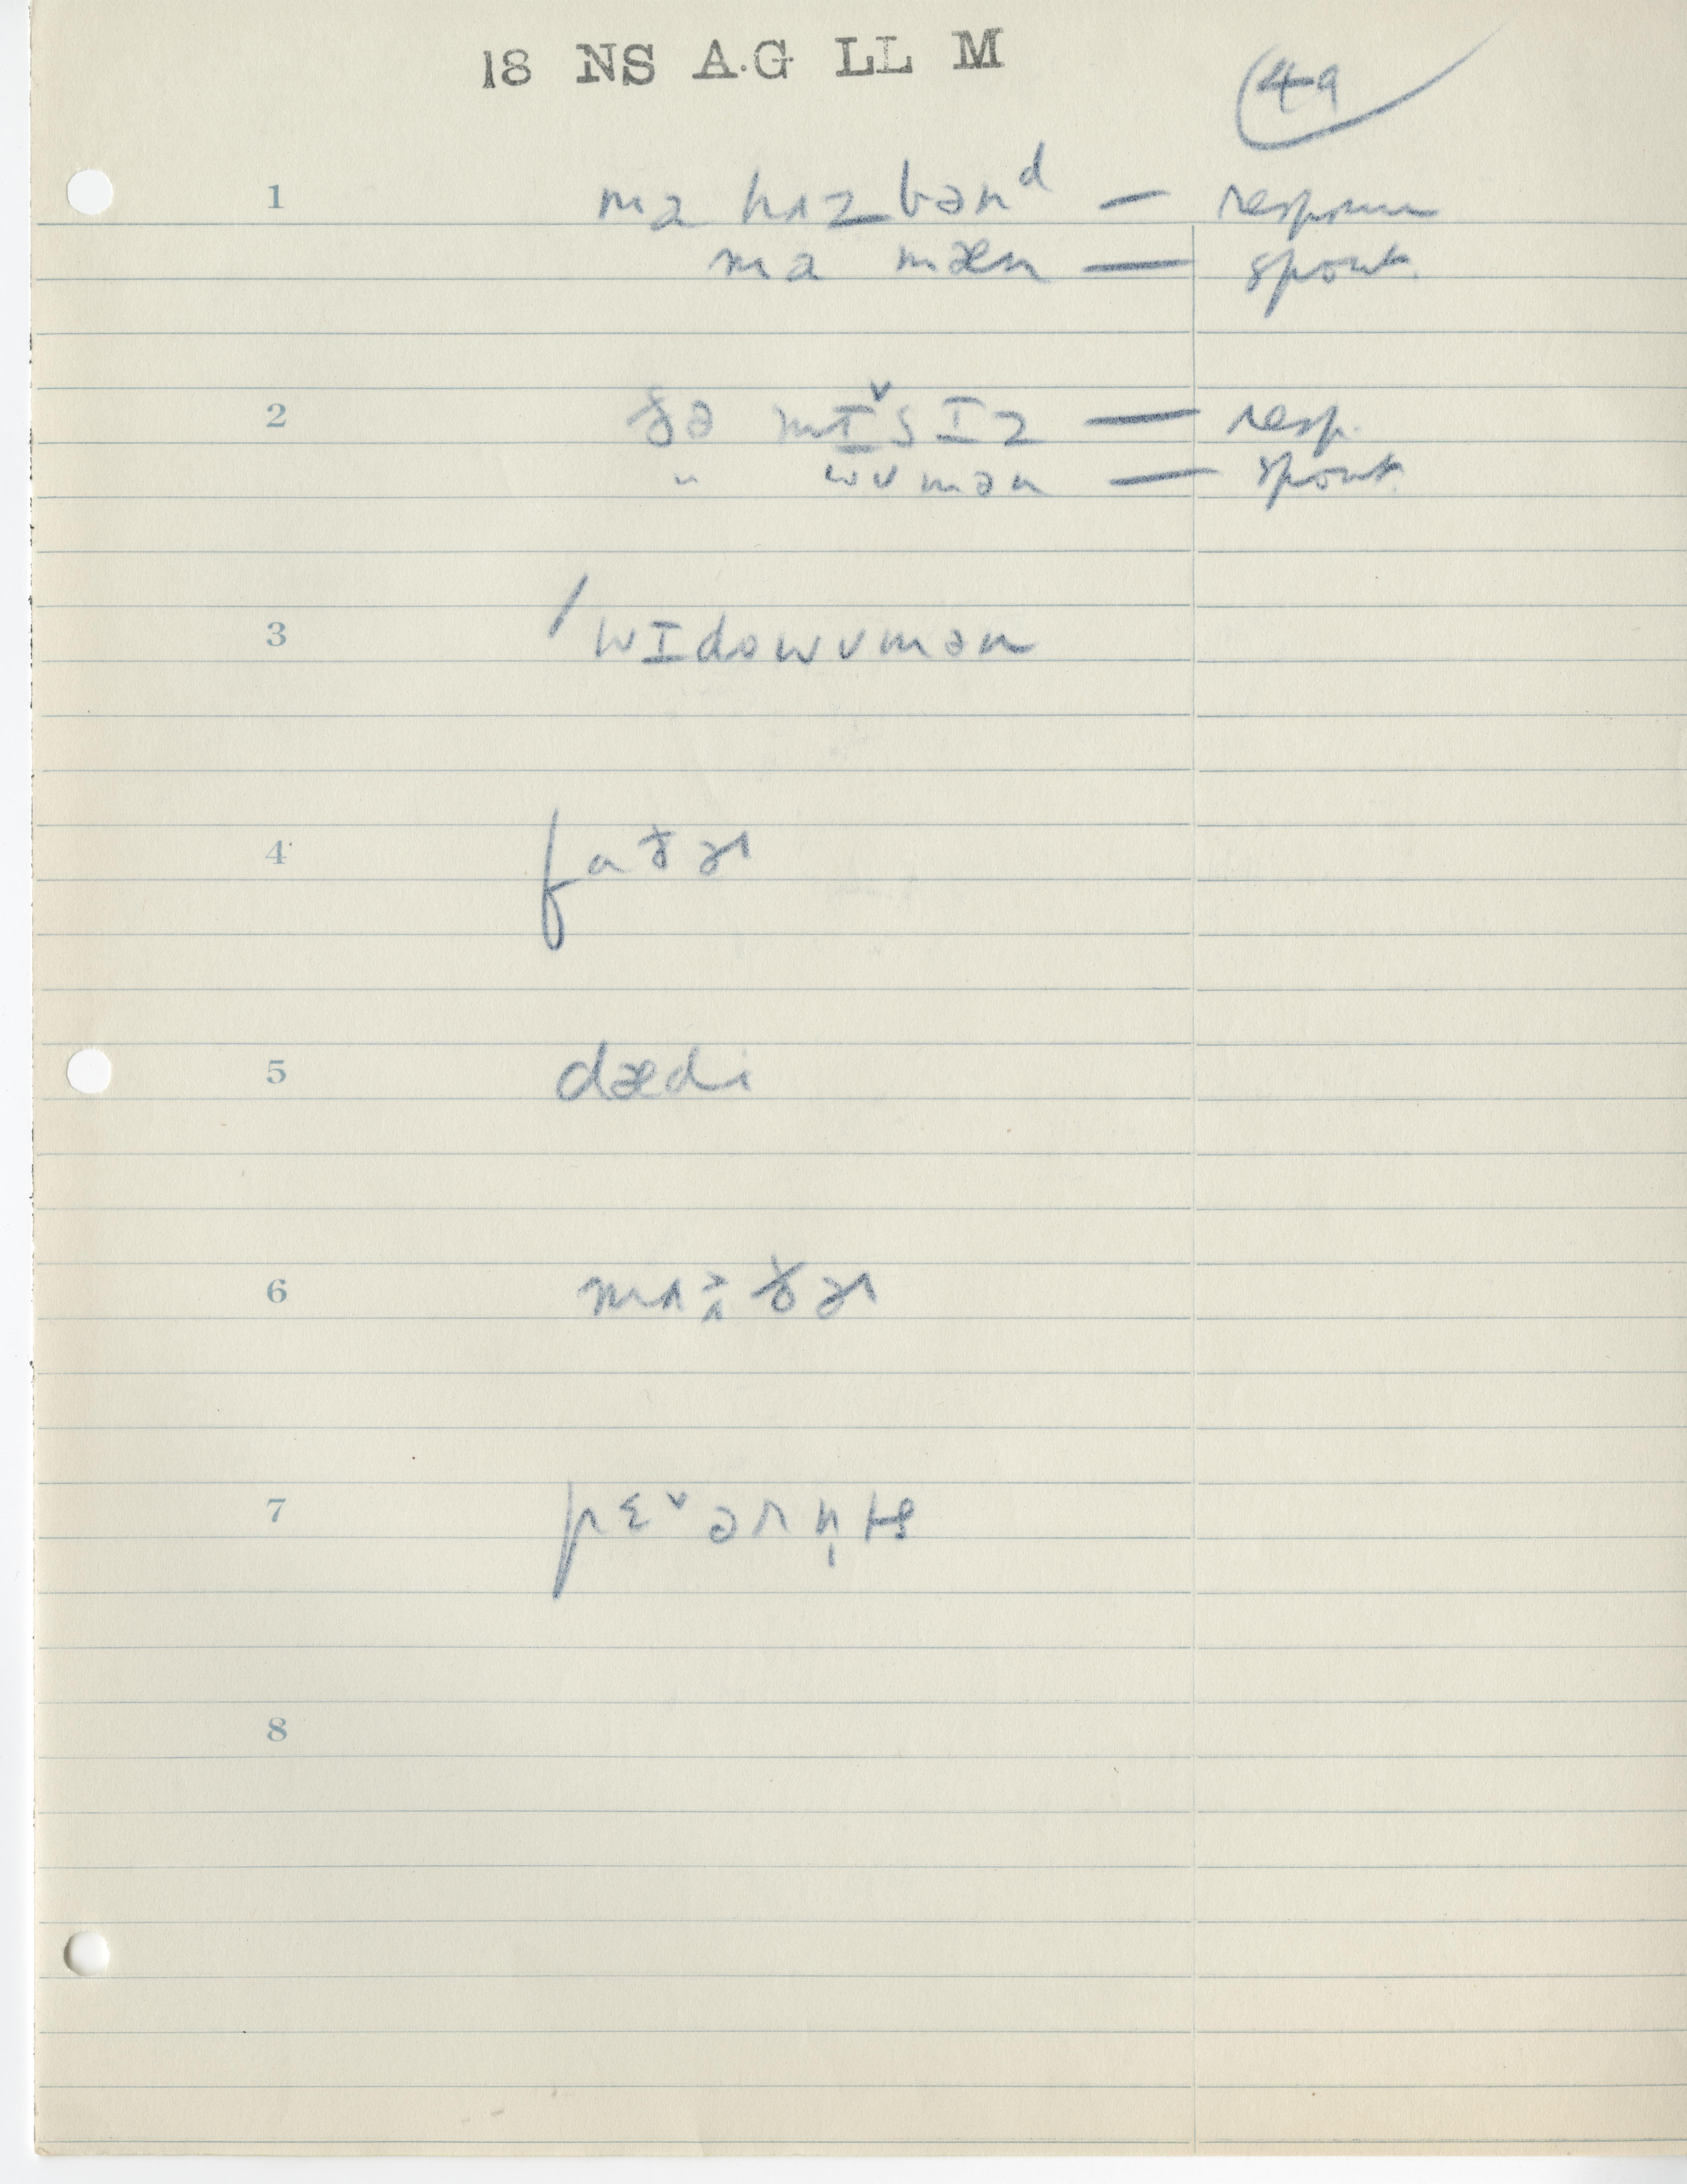 18 NS A.G. LL M
49
1 mə hʌzbənᵈ — response
mə mæn — spont.
2 ðə mɪ̬sɪz — resp.
" wʊmən — spont.
3 / wɪdowʊmən
4 faðɚ
5 dædi
6 mʌðɚ
7 pɛ˅ərn̩ts
8